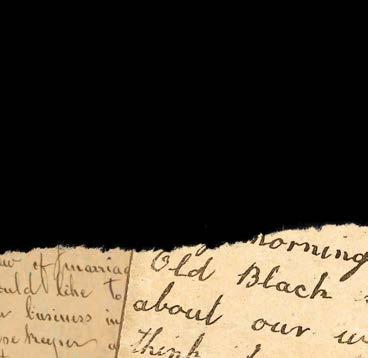 of marriag
ould like to
business in
keeper
morning
Old Black
about our
think